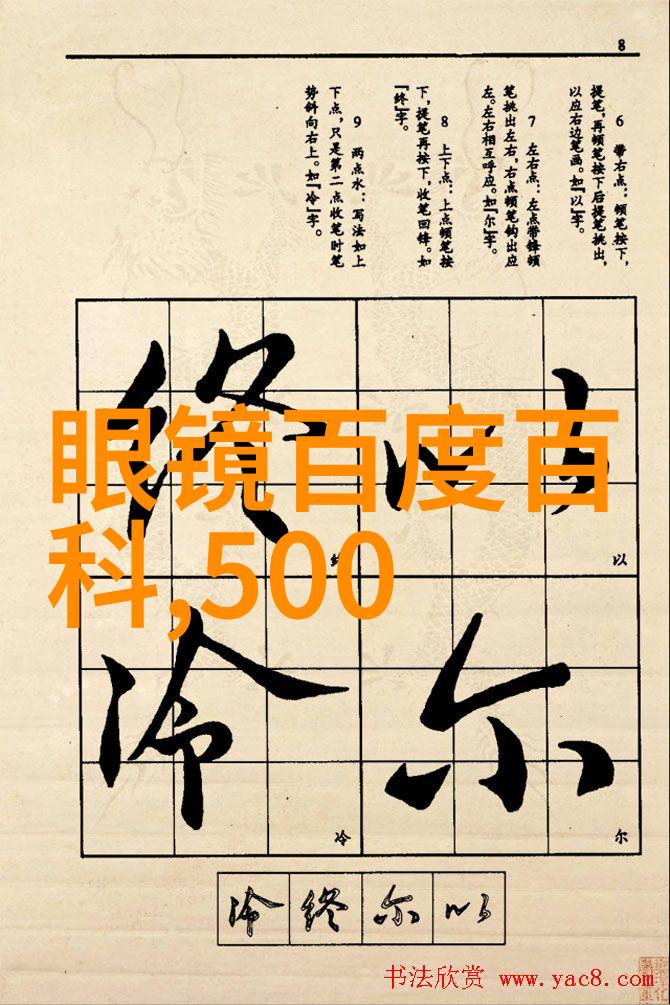 8
6　带右点：顿笔按下，
提笔，再顿笔按下后提笔挑出，
以应右边笔画。如『以』字。
7　左右点：左点带锋顿
笔挑出左右，右点顿笔钩出应
左。左右相互呼应。如『尔』字。
8　上下点：上点顿笔按
下，提笔再按下，收笔回锋。如
『终』字。
9　两点水：写法如上
下点，只是第二点收笔时笔
势斜向右上。如『冷』字。
终 以
眼镜百度百
科,500
终 以
冷 尔
冷 尔
冷 终 尔 以
书法欣赏 www.yac8.com